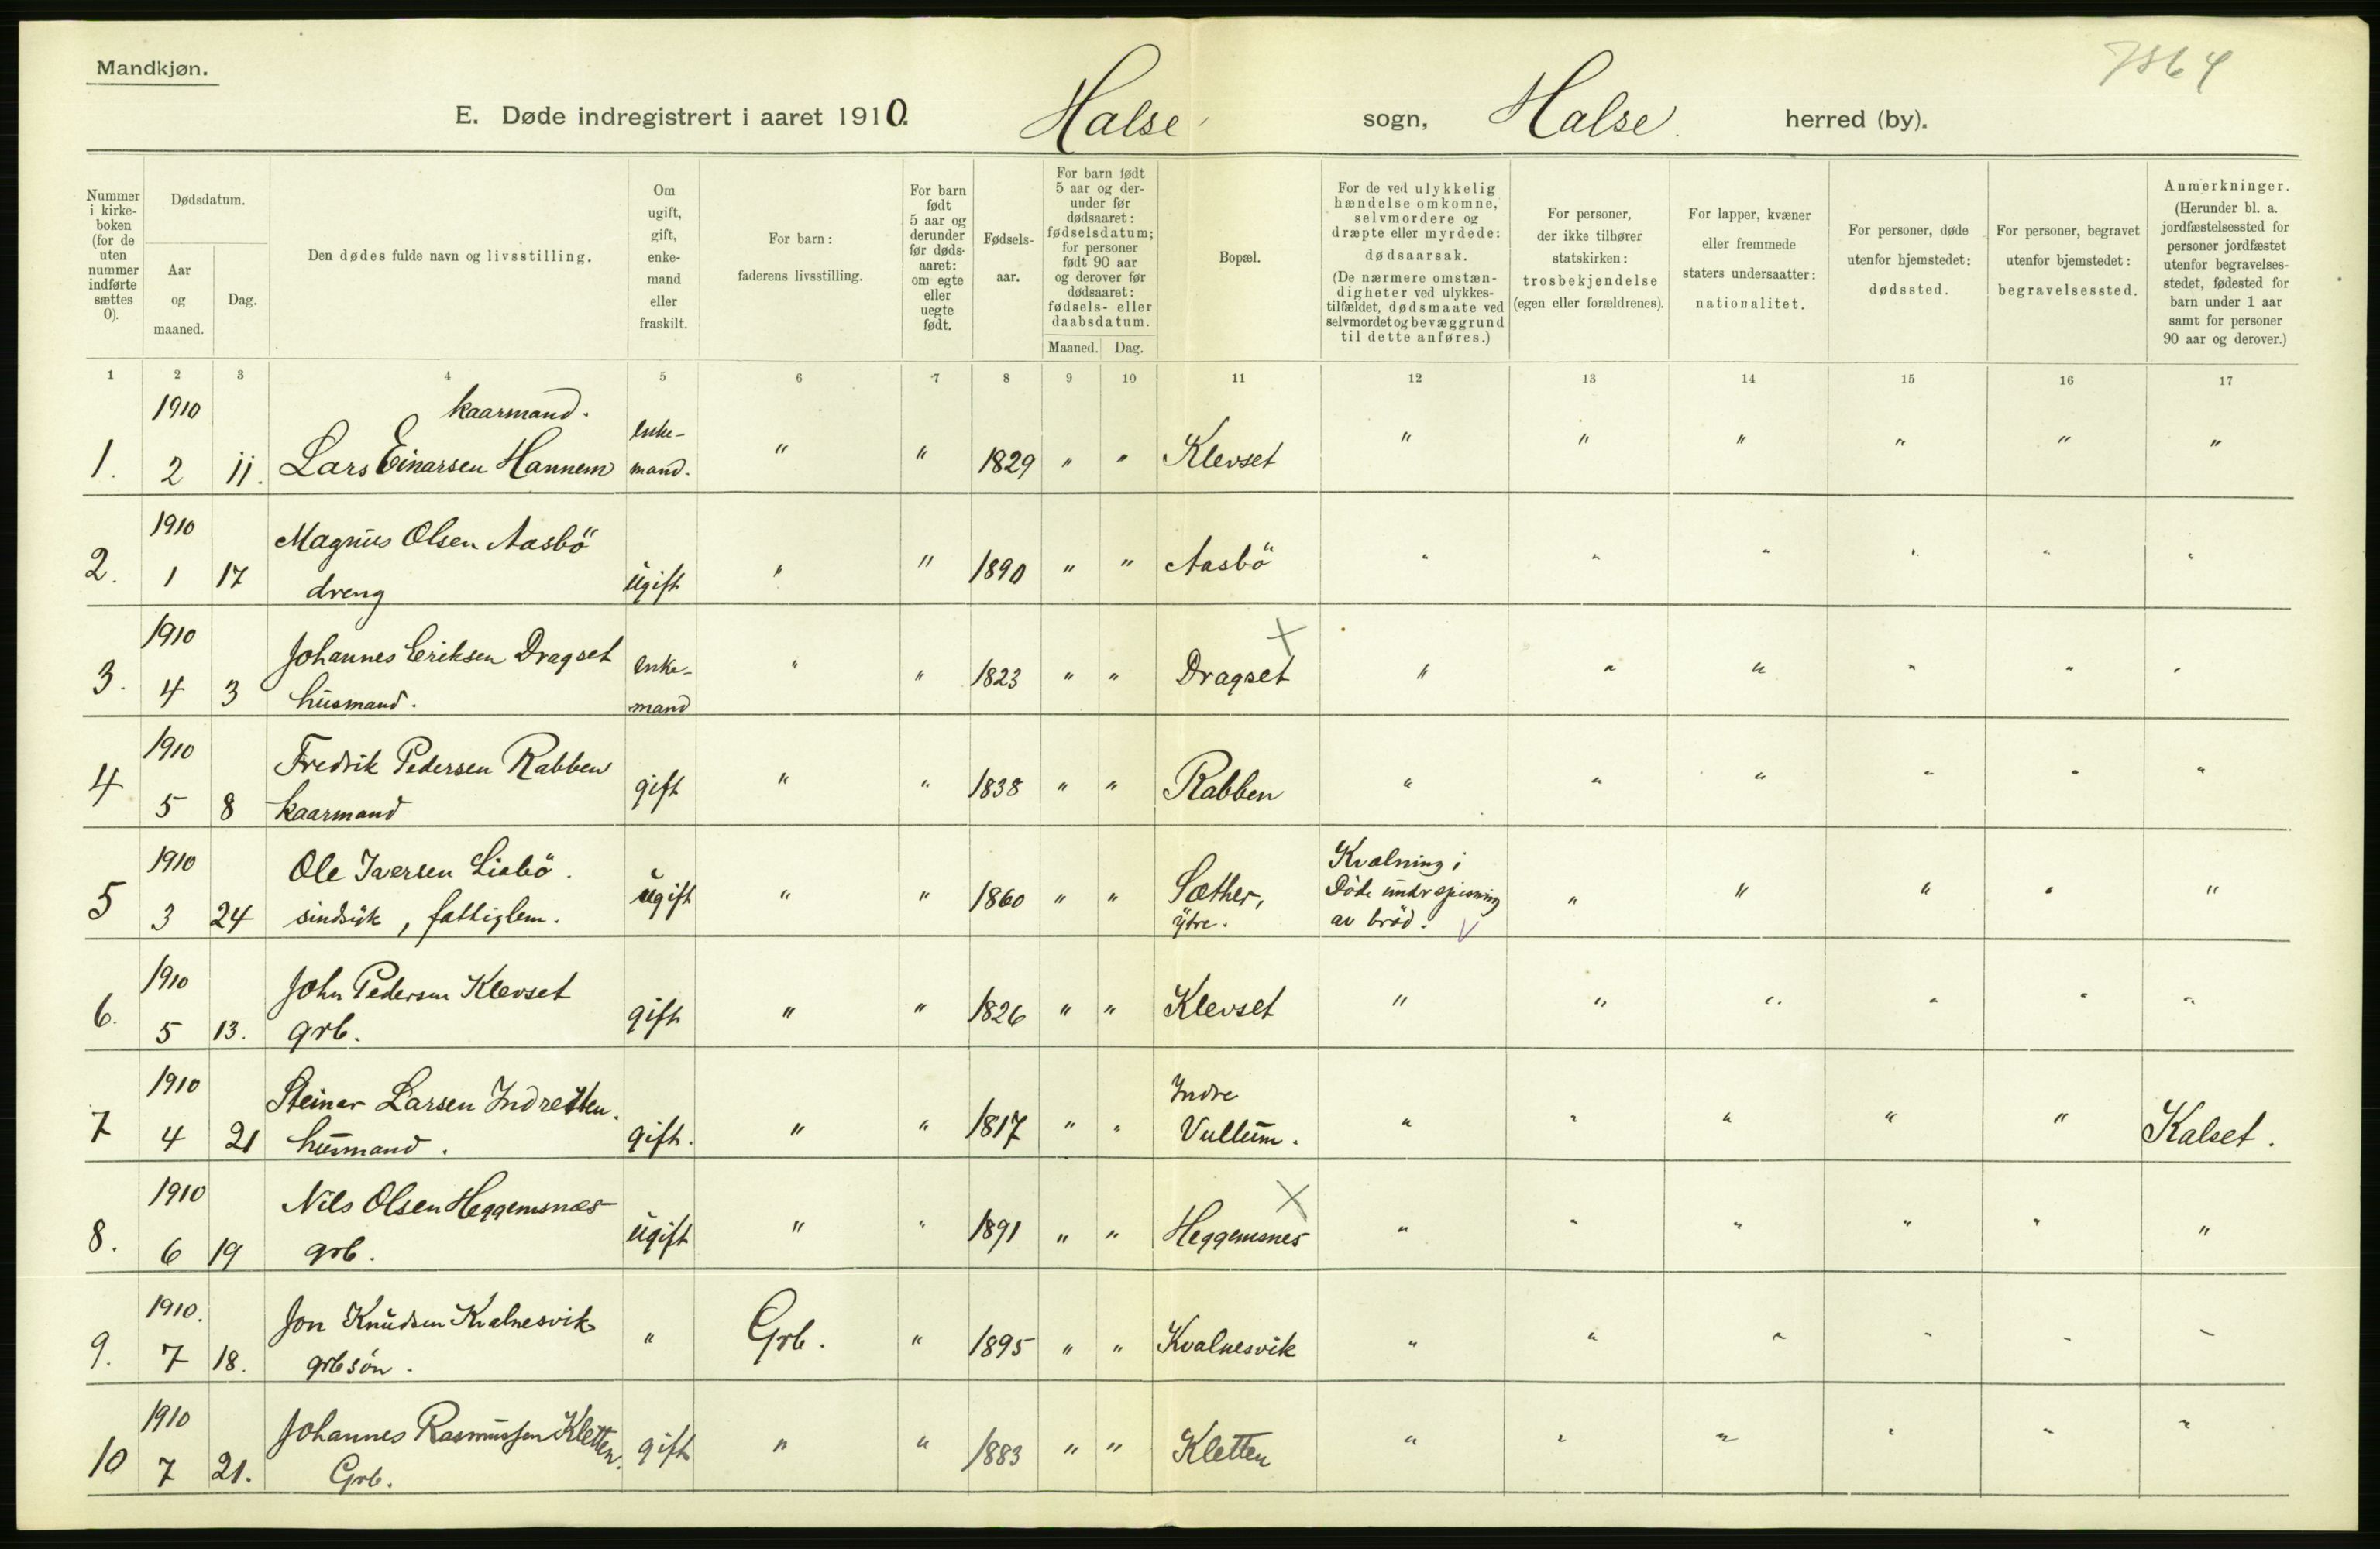 Mandkjøn.
7864
E. Døde indregistrert i aaret 1910. Halse sogn, Halse herred (by).
Nummer i kirke-boken (for de uten nummer indførte sættes 0).
Dødsdatum.
Aar og maaned.
Dag.
Den dødes fulde navn og livsstilling.
Om ugift, gift, enke-mand eller fraskilt.
For barn: faderens livsstilling.
For barn født 5 aar og derunder før døds-aaret: om egte eller uegte født.
Fødsels-aar.
For barn født 5 aar og der-under før dødsaaret: fødselsdatum; for personer født 90 aar og derover før dødsaaret: fødsels- eller daabsdatum.
Maaned. Dag.
Bopæl.
For de ved ulykkelig hændelse omkomne, selvmordere og dræpte eller myrdede: dødsaarsak. (De nærmere omstæn-digheter ved ulykkes-tilfældet, dødsmaate ved selvmordet og bevæggrund til dette anføres.)
For personer, der ikke tilhører statskirken: trosbekjendelse (egen eller forældrenes).
For lapper, kvæner eller fremmede staters undersaatter: nationalitet.
For personer, døde utenfor hjemstedet: dødssted.
For personer, begravet utenfor hjemstedet: begravelsessted.
Anmerkninger. (Herunder bl. a. jordfæstelsessted for personer jordfæstet utenfor begravelses-stedet, fødested for barn under 1 aar samt for personer 90 aar og derover.)
1 2 3 4 5 6 7 8 9 10 11 12 13 14 15 16 17
1910 kaarmand. enke-
1. 2 11. Lars Einarsen Hannem mand. " " 1829 " " Klevset " " " " " "
1910 Magnus Olsen Aasbö
2. 1 17 dreng ugift " " 1890 " " Aasbö " " " " " "
1910 Johannes Eriksen Dragset enke- ×
3. 4 3 husmand. mand " " 1823 " " Dragset " " " " " "
1910 Fredrik Pedersen Rabben
4 5 8 kaarmand gift " " 1838 " " Rabben " " " " " "
1910 Ole Iversen Liabö. Kvælning i
5 3 24 sindsyk, fattiglem. ugift " " 1860 " " Sæther, Döde undr spisning " " " " "
ytre. av bröd. V
1910 John Pedersen Klevset
6. 5 13. grb. gift " " 1826 " " Klevset " " " " " "
1910 Steinar Larsen Indreiten. Indre
7 4 21 husmand. gift. " " 1817 " " Vullum. " " " " " Kalset.
1910 Nils Olsen Heggemsnes ×
8. 6 19 grb. ugift " " 1891 " " Heggemsnes " " " " " "
1910. Jon Knudsen Kvalnesvik
9. 7 18. grbsön. " Grb. " 1895 " " Kvalnesvik " " " " " "
1910 Johannes Rasmussen Kletten.
10 7 21. Grb. gift " " 1883 " " Kletten " " " " " "